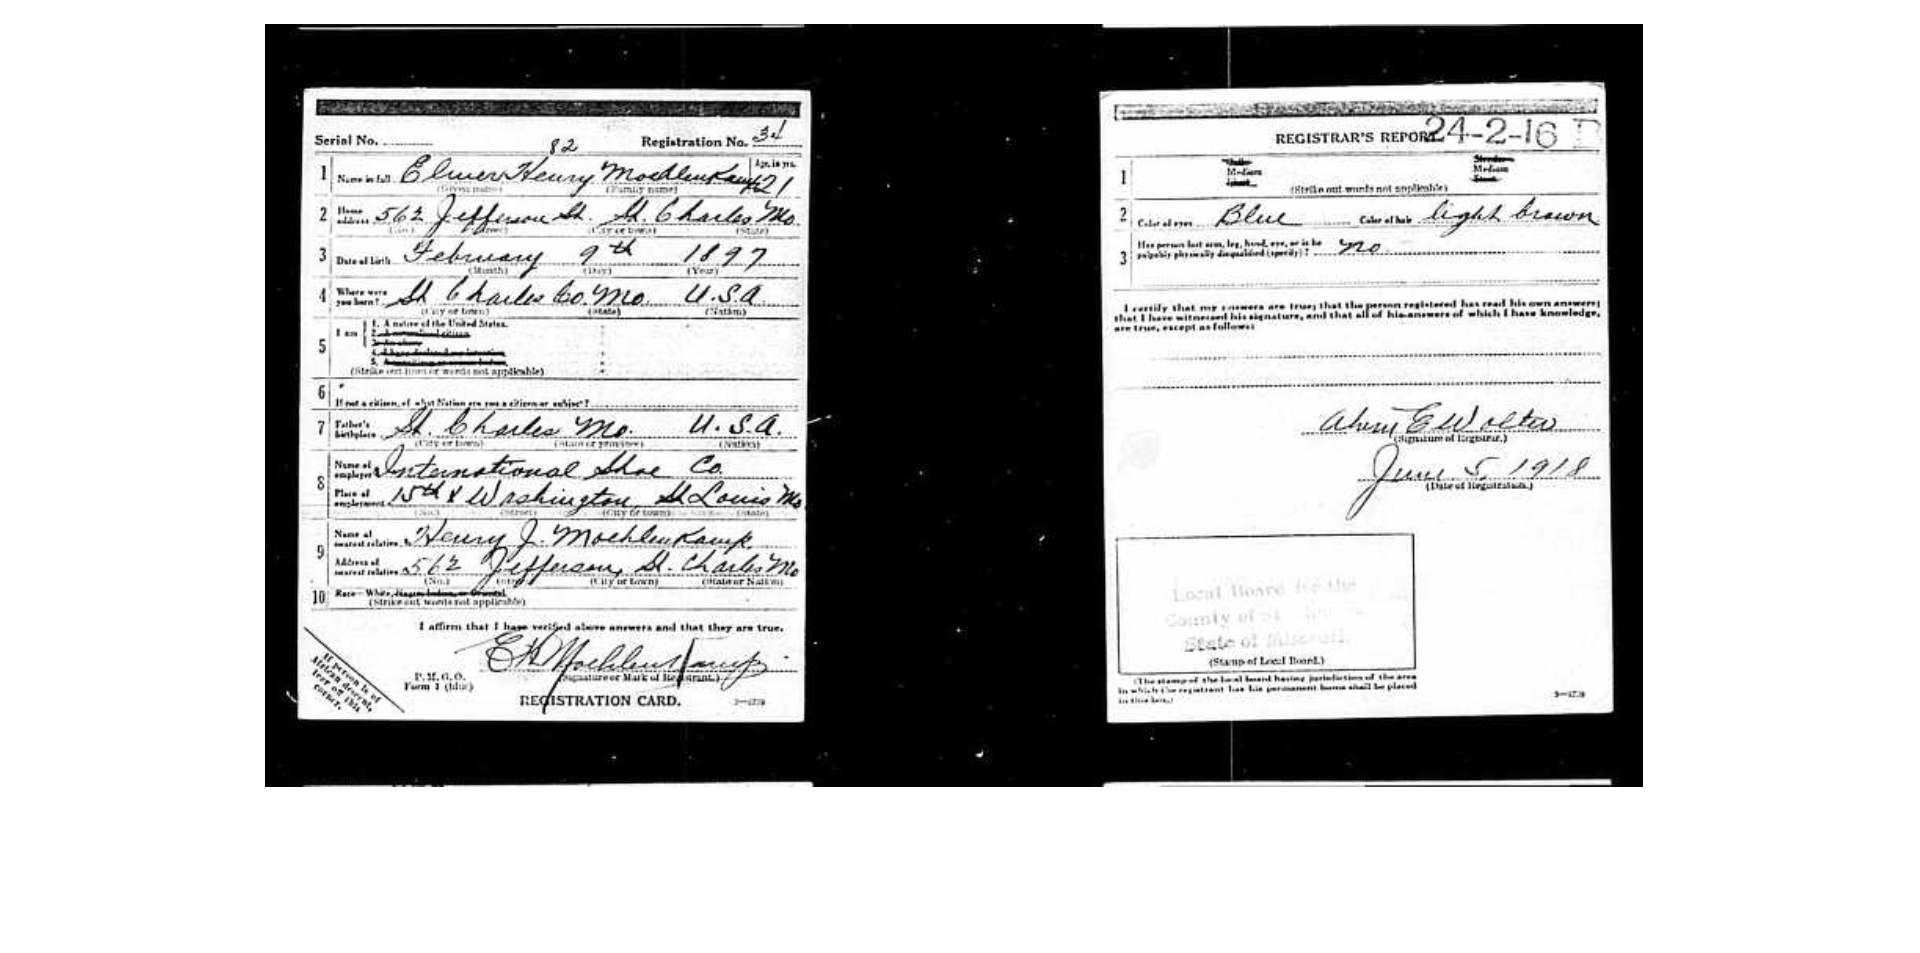 Serial No. 82 Registration No. 34
1 Name in full Elmer Henry Moehlenkamp Age, in yrs. 21
(Given name) (Family name)
2 Home address 562 Jefferson St. St. Charles Mo.
(No.) (Street) (City or town) (State)
3 Date of birth February 9th 1897
(Month) (Day) (Year)
4 Where were you born? St Charles Co. Mo. U.S.A
(City or town) (State) (Nation)
5 I am 1. A native of the United States.
2. A naturalized citizen.
3. An alien.
4. I have declared my intention.
5.
(Strike out lines or words not applicable)
6 If not a citizen, of what Nation are you a citizen or subject?
7 Father's birthplace St. Charles Mo. U.S.A.
(City or town) (State or province) (Nation)
8 Name of employer International Shoe Co.
Place of employment 15th & Washington, St Louis Mo
(No.) (Street) (City or town) (State)
9 Name of nearest relative Henry J. Moehlenkamp
Address of nearest relative 562 Jefferson, St. Charles Mo
(No.) (Street) (City or town) (State or Nation)
10 Race—White, Negro, Indian, or Oriental
(Strike out words not applicable)
I affirm that I have verified above answers and that they are true.
E H Moehlenkamp
(Signature or Mark of Registrant.)
P. M. G. O.
Form 1 (blue)
REGISTRATION CARD.
If person is of
African descent,
tear off this
corner.
REGISTRAR'S REPORT 24-2-16
1 Tall Medium Short Slender Medium Stout
(Strike out words not applicable)
2 Color of eyes Blue Color of hair light brown
3 Has person lost arm, leg, hand, eye, or is he
palpably physically disqualified (specify)? no
I certify that my answers are true; that the person registered has read his own answers;
that I have witnessed his signature, and that all of his answers of which I have knowledge,
are true, except as follows:
E Wolter
(Signature of Registrar.)
June 5, 1918
(Date of Registration.)
Local Board for the
County of St
State of Missouri.
(Stamp of Local Board.)
(The stamp of the local board having jurisdiction of the area
in which the registrant has his permanent home shall be placed
in this box.)